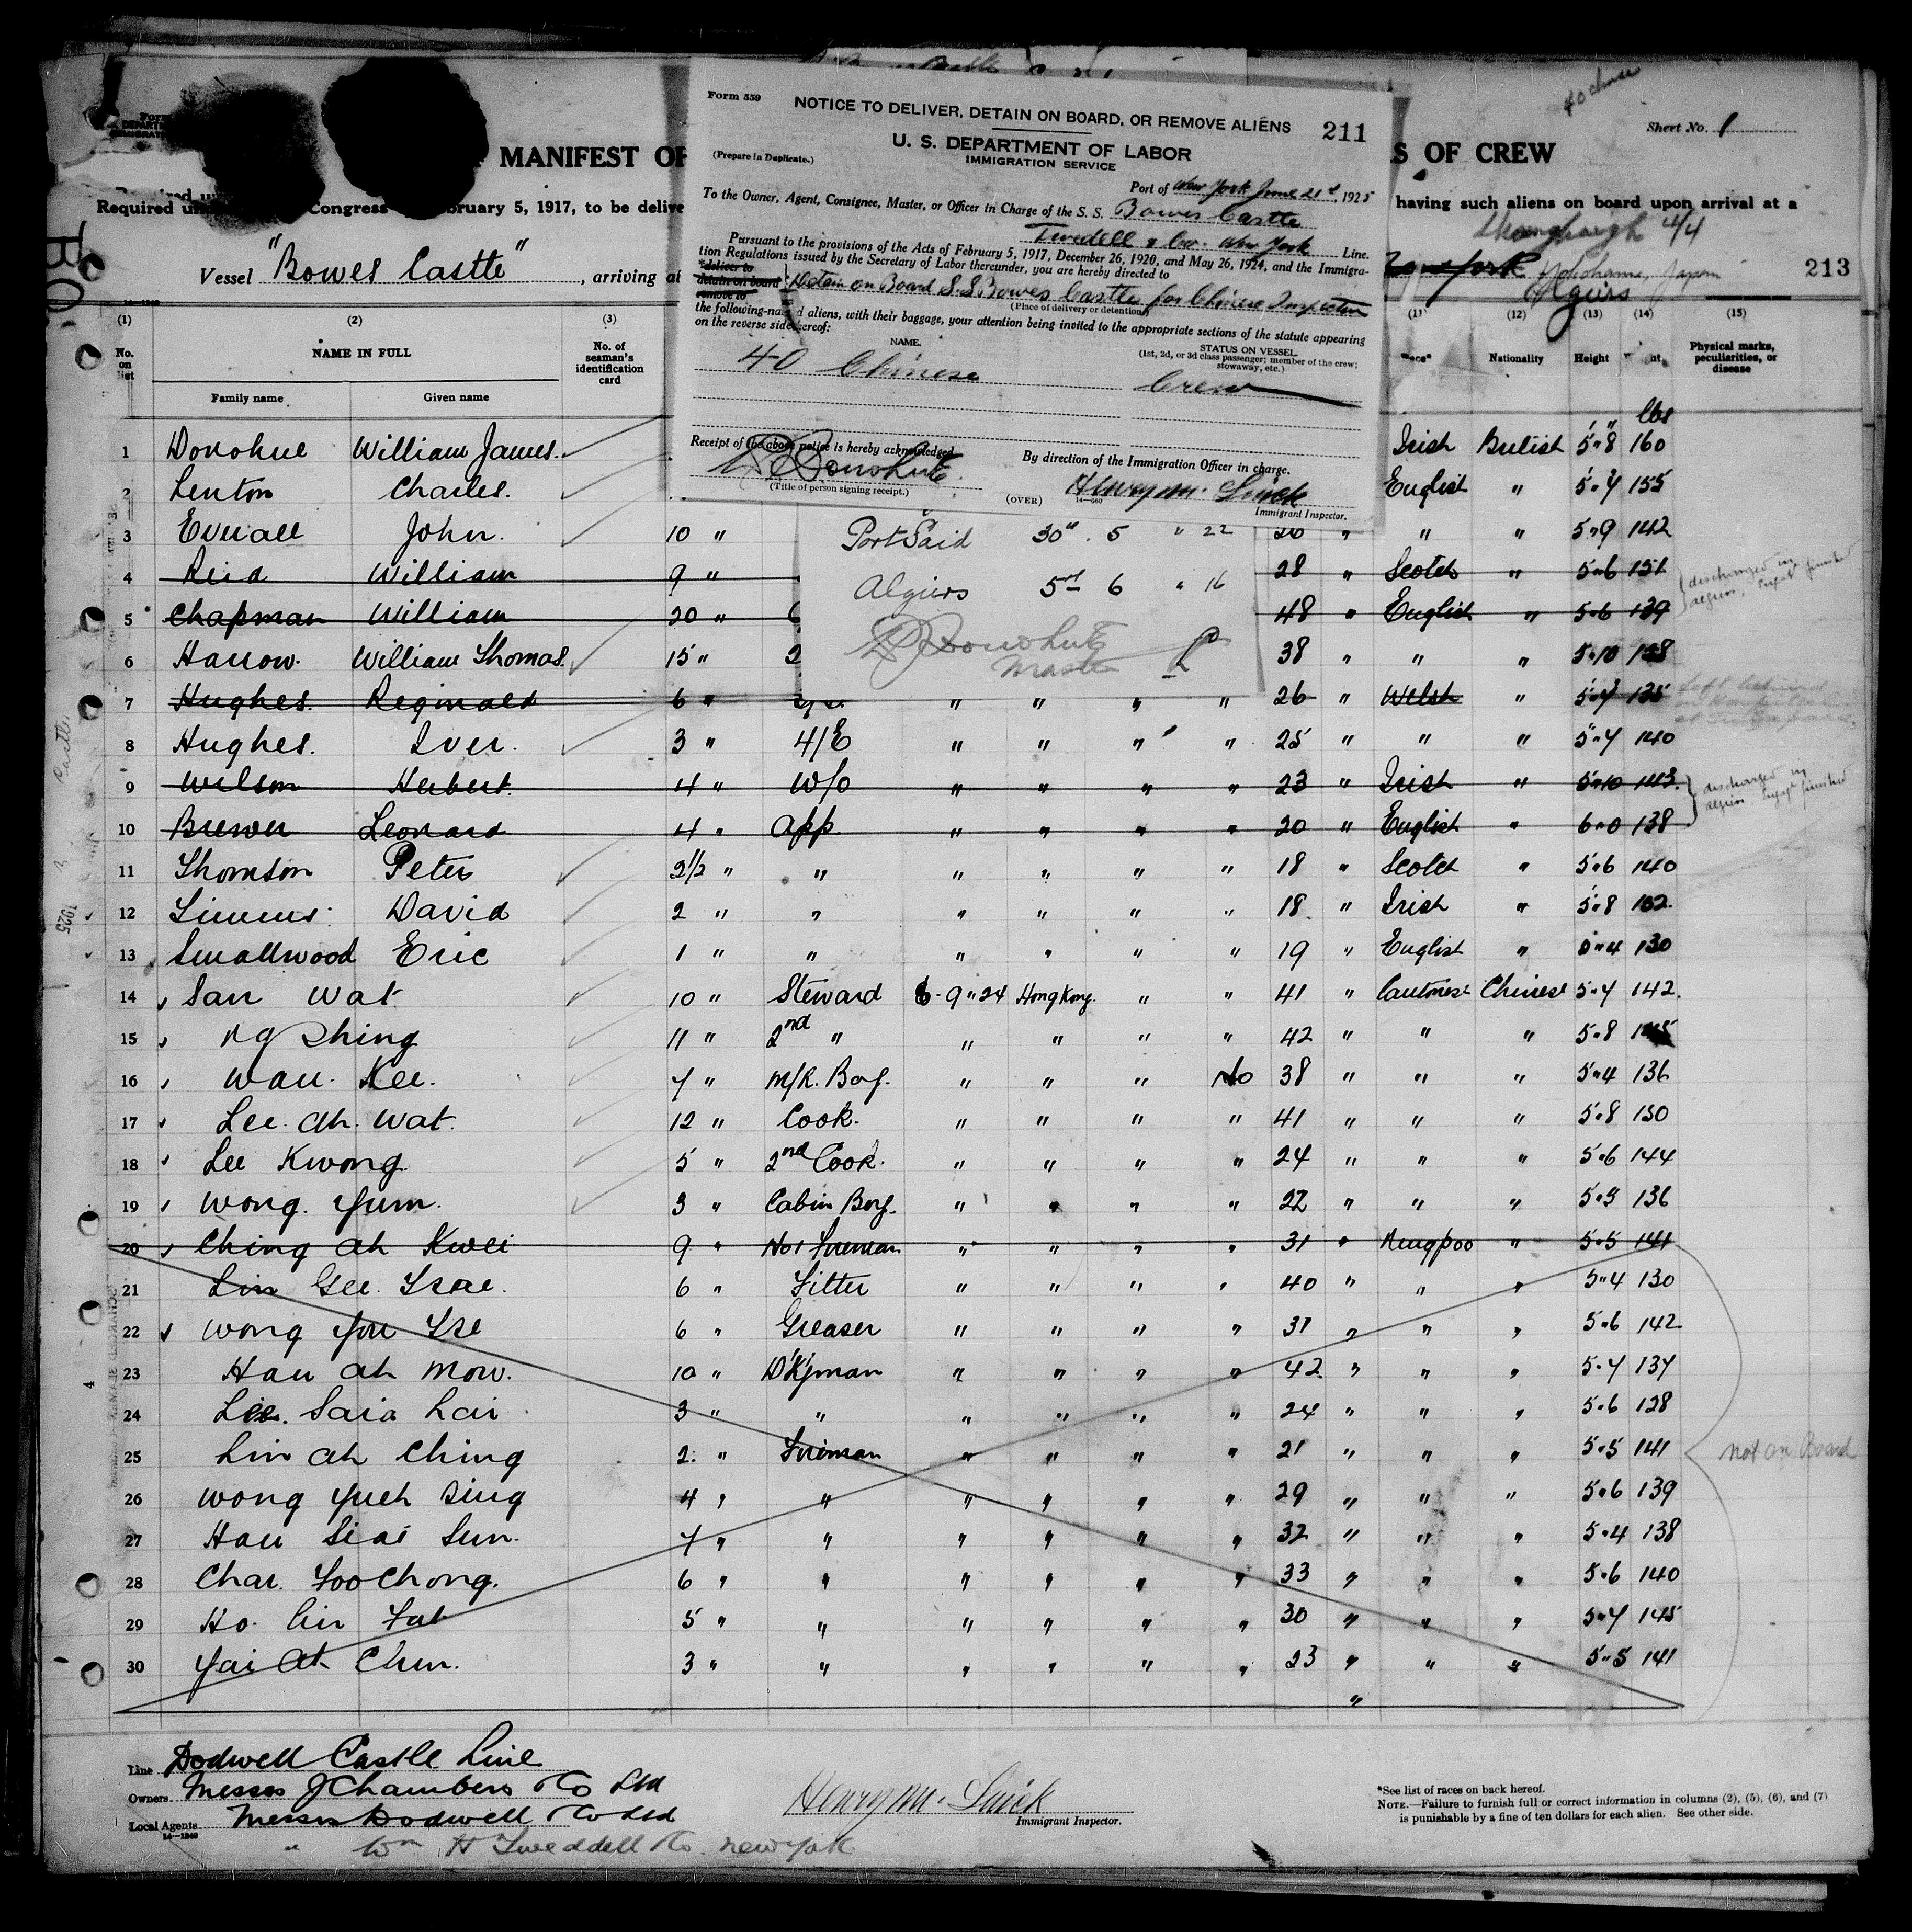 40 Chinese
Sheet No. 1
MANIFEST OF
S OF CREW
Required un
Congress
bruary 5, 1917, to be delive
having such aliens on board upon arrival at a
Vessel "Bowes Castle", arriving at
Yokohama, Japan
Algiers
213
Form 539
NOTICE TO DELIVER, DETAIN ON BOARD, OR REMOVE ALIENS
211
U. S. DEPARTMENT OF LABOR
(Prepare in Duplicate.)
IMMIGRATION SERVICE
Port of New York June 21st, 1925
To the Owner, Agent, Consignee, Master, or Officer in Charge of the S. S. Bowes Castle
New York Line.
Pursuant to the provisions of the Acts of February 5, 1917, December 26, 1920, and May 26, 1924, and the Immigra-
tion Regulations issued by the Secretary of Labor thereunder, you are hereby directed to
*deliver to
detain on board
remove to
Detain on Board S.S Bowes Castle for Chinese Inspection
(Place of delivery or detention)
the following-named aliens, with their baggage, your attention being invited to the appropriate sections of the statute appearing
on the reverse side hereof:
NAME.
STATUS ON VESSEL
(1st, 2d, or 3d class passenger; member of the crew;
stowaway, etc.)
40 Chinese Crew
Receipt of the above notice is hereby acknowledged
By direction of the Immigration Officer in charge.
(Title of person signing receipt.)
(OVER)
14—660
Henry M.
Immigrant Inspector.
Port Said 30" . 5 " 22
Algiers 5th 6 " 16
Master
(1) (2) (3) (12) (13) (14) (15)
No. on list
NAME IN FULL
Family name Given name
No. of seaman's identification card
Nationality Height
Physical marks, peculiarities, or disease
lbs
1 Donohue William James. Irish British 5"8 160
2 Lenton Charles. English " 5"7 155
3 Everall John. 10 " " " 5"9 142
4 Reid William 9 " 28 " Scotch " 5"6 151
5 Chapman William 20 " 48 " English " 5"6 139
6 Harrow. William Thomas. 15 " 38 " " " 5"10
7 Hughes. Reginald 6 " " " " " 26 " Welsh " 5"7 135
8 Hughes. Iver. 3 " 4/E " " " " 25 " " " 5"7 140
9 Wilson Herbert. 4 " W/o " " " " 23 " Irish " 5"10 143.
10 Brewer Leonard 4 " App " " " " 20 " English " 6"0 138
11 Thomson Peter 2½ " " " " " " 18 " Scotch " 5"6 140
12 Simms David 2 " " " " " " 18 " Irish " 5"8
13 Smallwood Eric 1 " " " " " " 19 " English " 130
14 San Wat 10 " Steward 6-9"24 Hong Kong. " " 41 " Cantonese Chinese 5"7 142.
15 Ng Shing 11 " 2nd " " " " " 42 " " " 5"8
16 Wau. Kee. 7 " M/R. Boy. " " " No 38 " " " 5"4 136
17 Lee. ah. Wat. 12 " Cook. " " " " 41 " " " 5"8 130
18 Lee Kwong. 5 " 2nd Cook. " " " " 24 " " " 5"6 144
19 Wong. Yum. 3 " Cabin Boy. " " " " 22 " " " 5"5 136
20 Ching Ah Kwei 9 " No 1 Fireman " " " " 31 " Ningpoo " 5"5 141
21 Lin Gee. 6 " Fitter " " " " 40 " " " 5"4 130
22 Wong You Tse 6 " Greaser " " " " 31 " " " 5"6 142
23 Hau Ah Mow. 10 " D'K'yman " " " " 42 " " " 5"7 137
24 Lee. Saia Lai 3 " " " " " " 24 " " " 5"6 128
25 Lin Ah Ching 2 " Fireman " " " " 21 " " " 5"5 141
26 Wong Yueh Sing 4 " " " " " " 29 " " " 5"6 139
27 Hau Siai Sun. 7 " " " " " " 32 " " " 5"4 138
28 Char. Foo Chong. 6 " " " " " " 33 " " " 5"6 140
29 Ho. Fat 5 " " " " " " 30 " " " 5"7 145
30 Yai At Chun. 3 " " " " " " 23 " " " 5"5 141
discharged in
Algiers
not on Board
Line Dodwell Castle Line
Owners Messrs J Chambers & Co Ltd
Local Agents Messrs Dodwell & Co Ltd
14—1240
" Wm H Tweddell & Co. New York
Henry M.
Immigrant Inspector.
*See list of races on back hereof.
NOTE.—Failure to furnish full or correct information in columns (2), (5), (6), and (7)
is punishable by a fine of ten dollars for each alien. See other side.